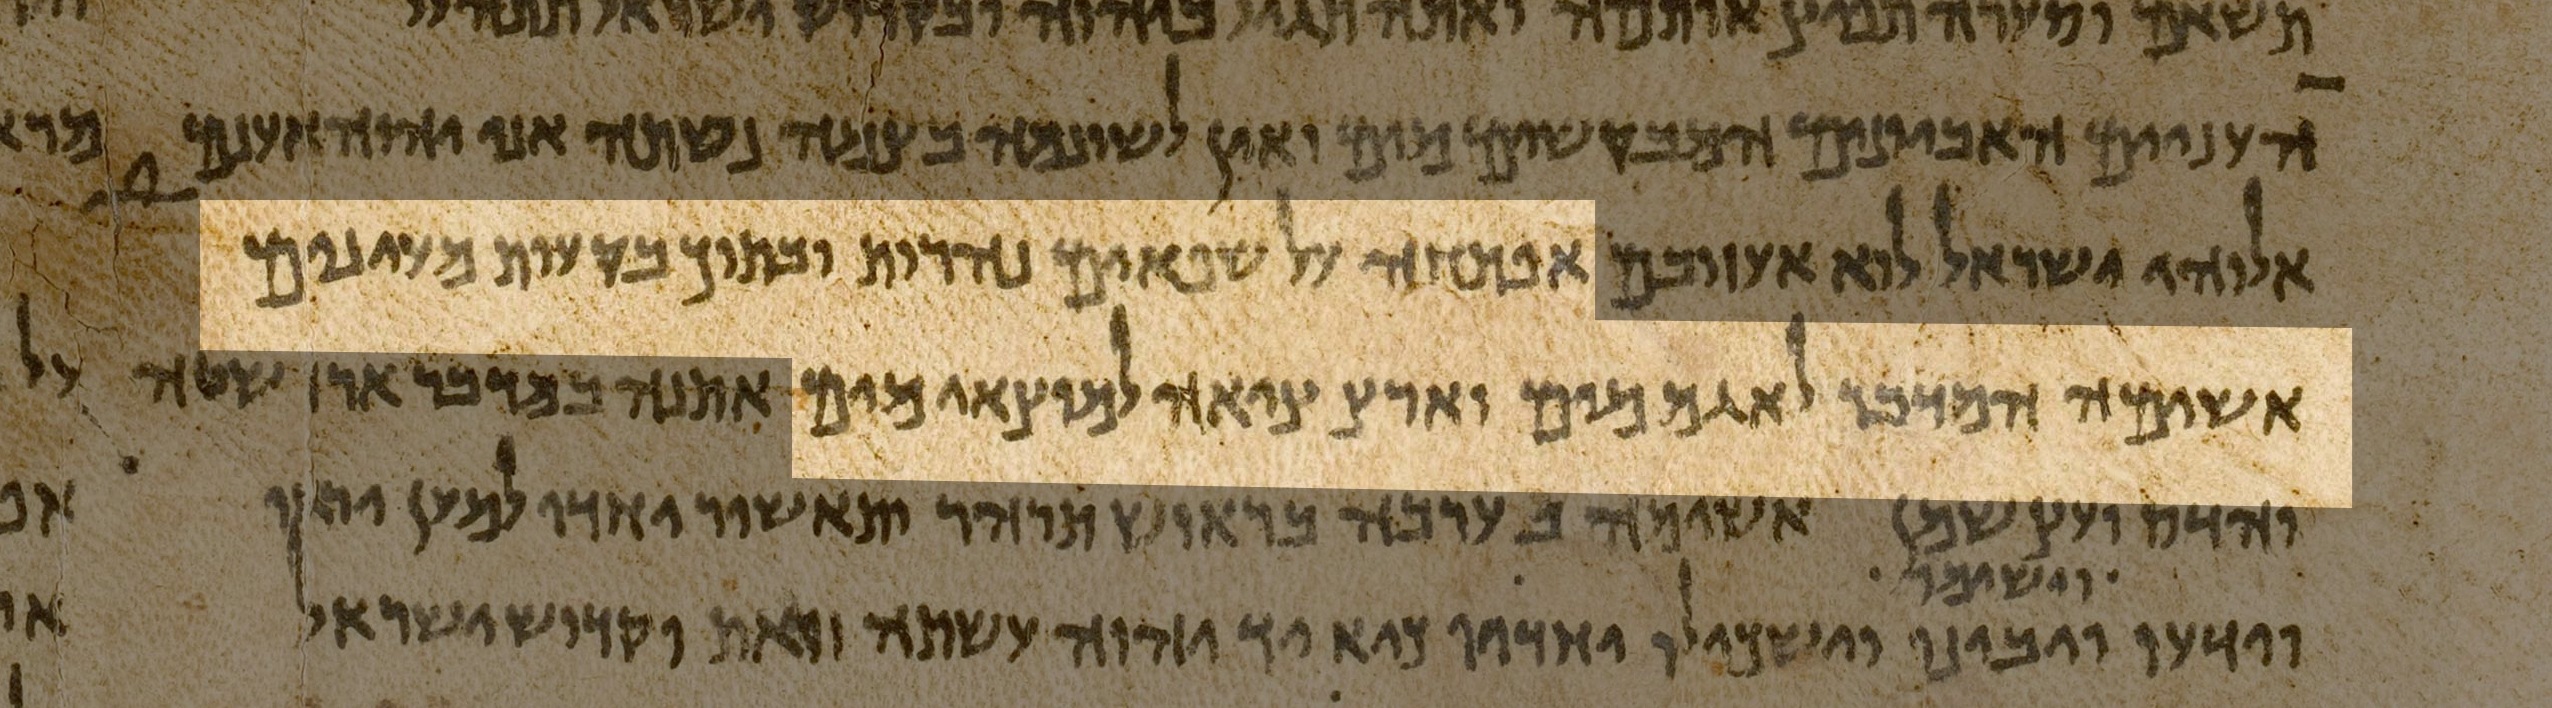 תשאם וסערה תפיץ אותמה ואתה תגול ביהוה ובקדוש ישראל תתהלל
העניים האביונים המבקשים מים ואין לשונמה בצמה נשתה אני יהוה אענם
אלוהי ישראל לוא אעוזבם אפתחה על שפאים נהרות ובתוך בקעות מעינים
אשימה המדבר לאגם מים וארץ ציאה למוצאי מים אתנה במדבר ארז שטה
והדס ועץ שמן אשימה בערבה בראוש תרהר ותאשור יחדו למען יראו
וישימו
וידעו ויבינו וישכילו יחדיו כיא יד יהוה עשתה זואת וקדוש ישראל